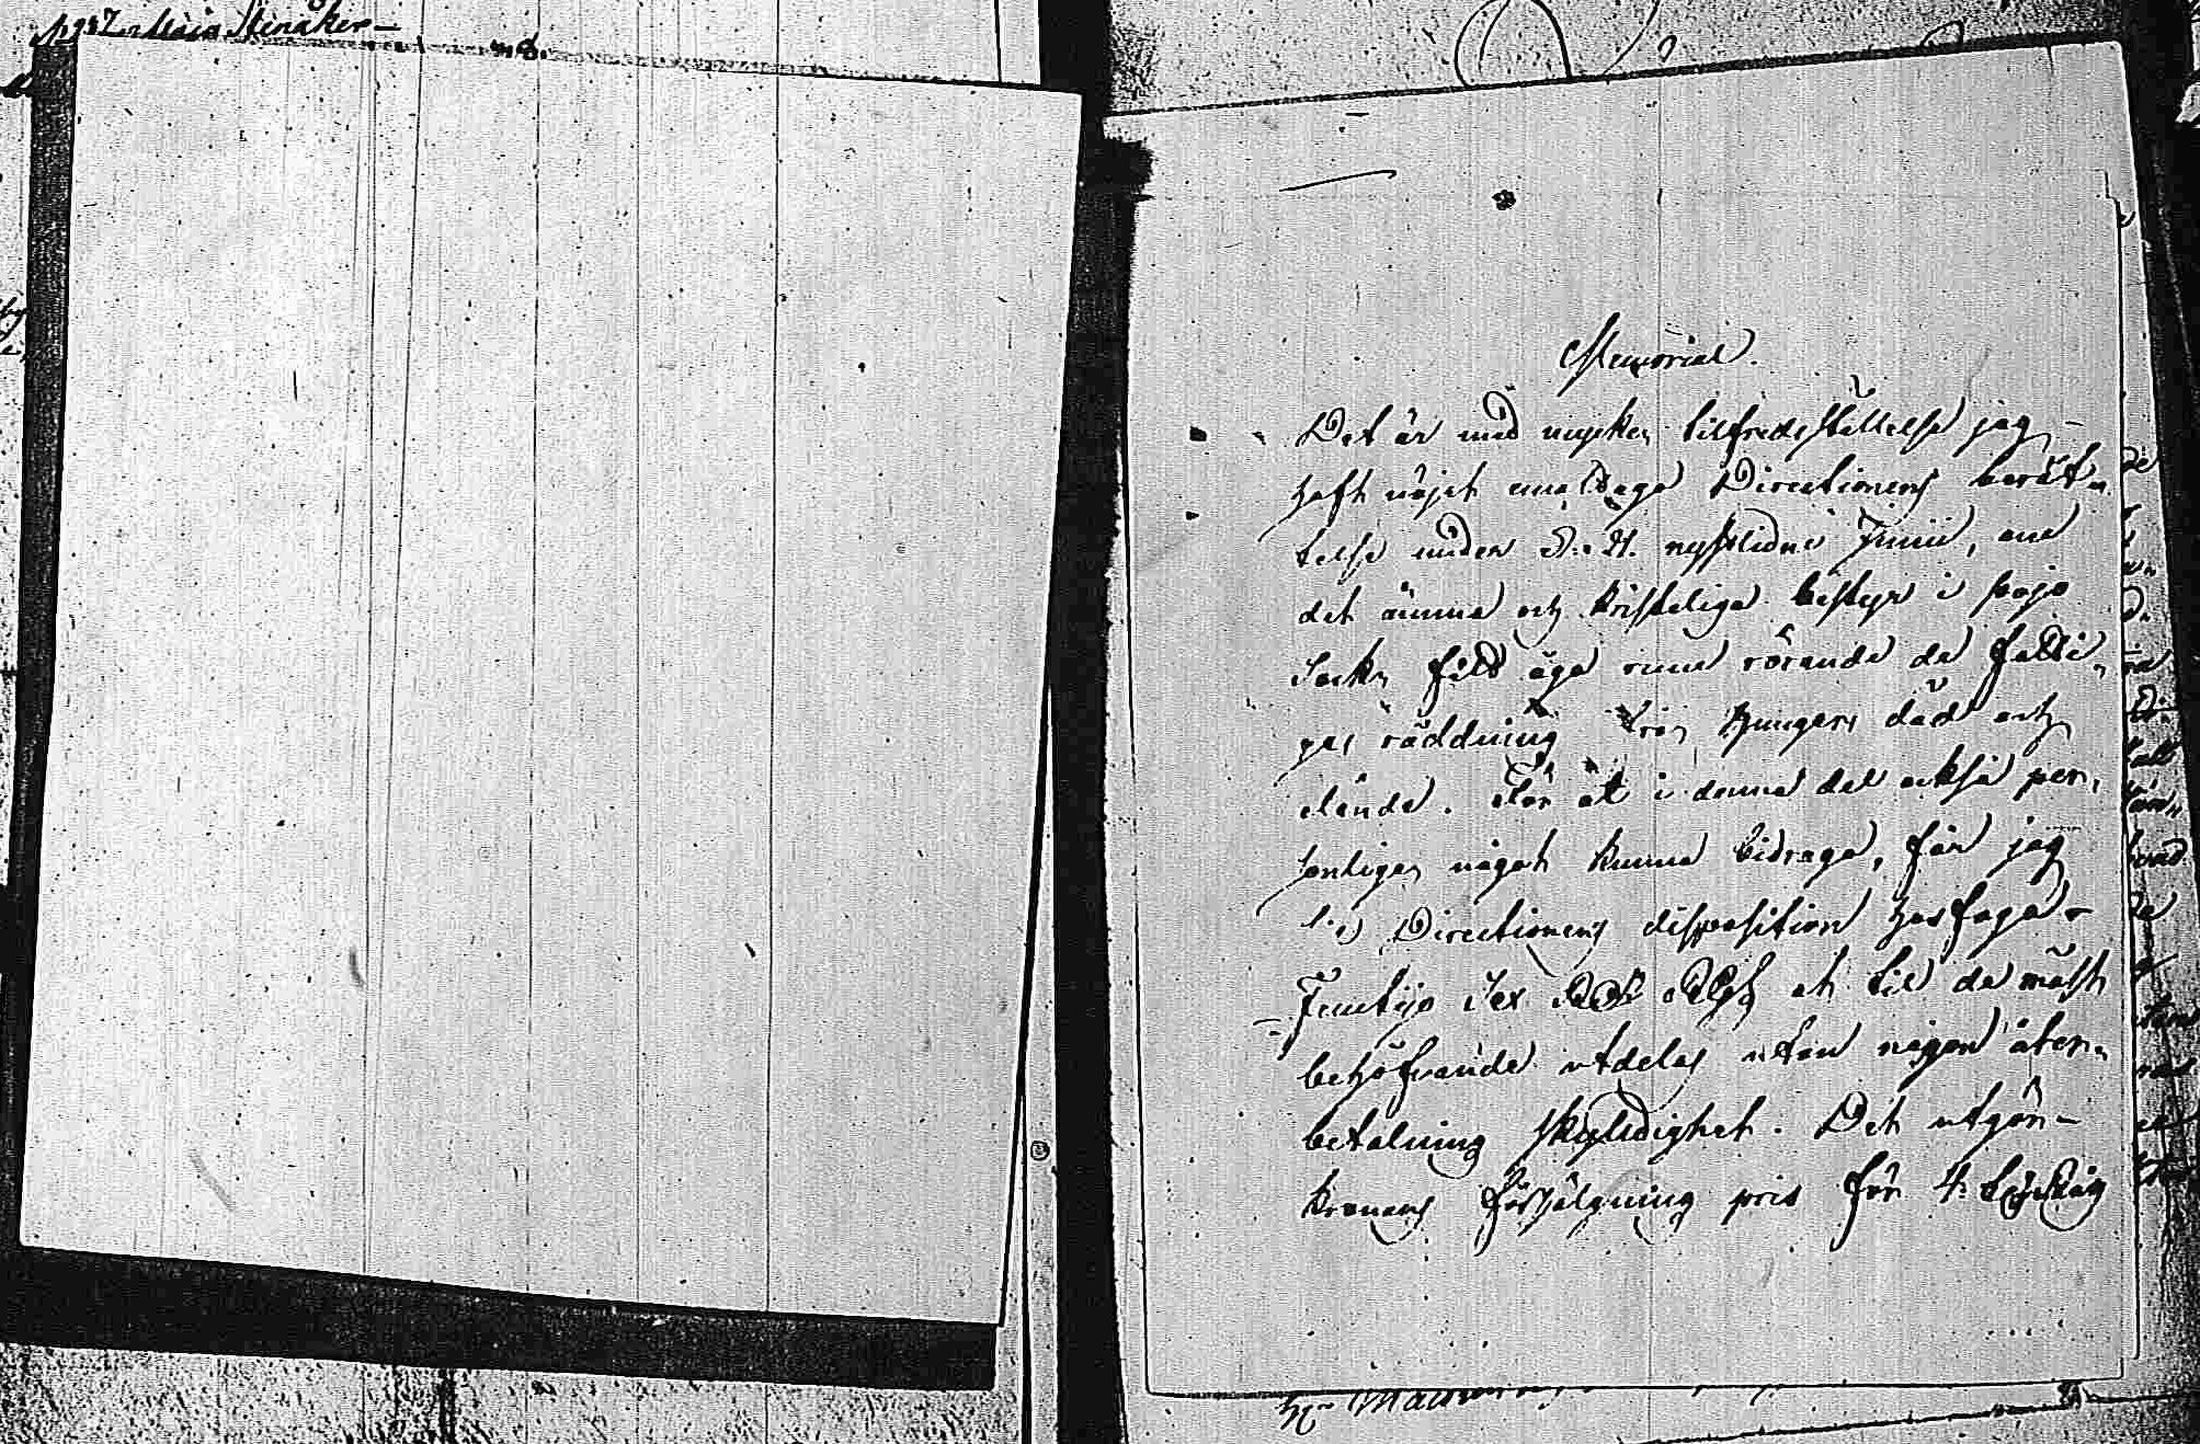 Maja Stenåker
Memorial.
Det är med mycken tilfredsställelse jag
haft nöjet emottaga Directionens berät-
telse under d: 21. nystledne Junii, om
det ömma och kristeliga bestyr i Pojo
Sokn fått äga rum rörande de fatti-
gas räddning från hungers död och
elände. För at i denna del också per-
sonligen något kunna bidraga, får jag
til Directionens disposition hosfoga
Femtijo Sex Rubel at til de mäst
behöfvande utdelas utan någon åter-
betalning skyldighet. Det utgör
kronans försäljning pris för 4.